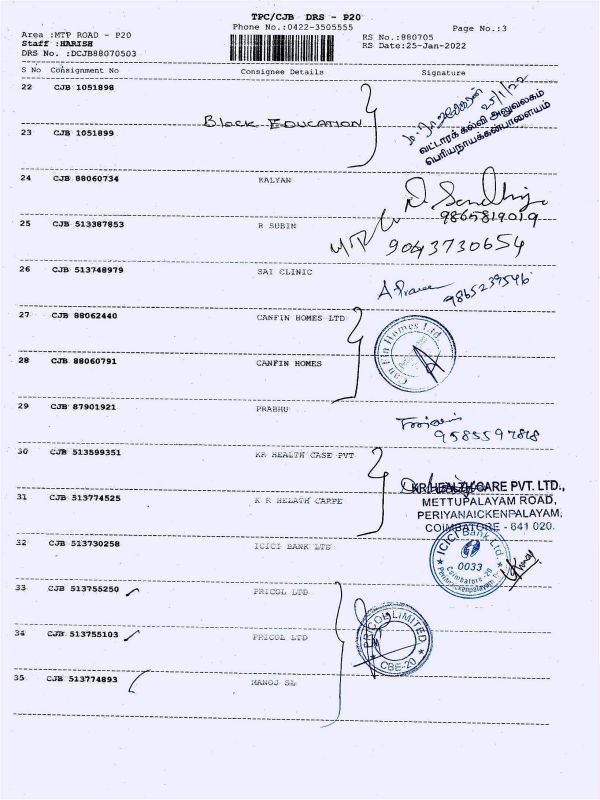 TPC/CJB DRS - P20
Phone No.:0422-3505555
Page No.:3
Area :MTP ROAD - P20
RS No.:880705
Staff :HARISH
RS Date:25-Jan-2022
DRS No. :DCJB88070503
S No Consignment No Consignee Details Signature
22 CJB 1051898
25/1/22
BLock EDUCATION
வட்டாரக் கல்வி அலுவலகம்
பெரியநாயக்கன்பாளையம்
23 CJB 1051899
24 CJB 88060734 KALYAN
9865819019
25 CJB 513387853 R SUBIN
9043730654
26 CJB 513748979 SAI CLINIC
9865239546
27 CJB 88062440 CANFIN HOMES LTD
Can Fin Homes Ltd
28 CJB 88060791 CANFIN HOMES
29 CJB 87901921 PRABHU
9585597848
30 CJB 513599351 KR HEALTH CASE PVT
KR HEALTHCARE PVT. LTD.,
METTUPALAYAM ROAD,
PERIYANAICKENPALAYAM,
COIMBATORE - 641 020.
31 CJB 513774525 K R HELATH CARPE
32 CJB 513730258 ICICI BANK LTD
ICICI Bank Ltd.
0033
Coimbatore-20
33 CJB 513755250 PRICOL LTD
34 CJB 513755103 PRICOL LTD
PRICOL LIMITED
CBE-20
35 CJB 513774893 MANOJ SL